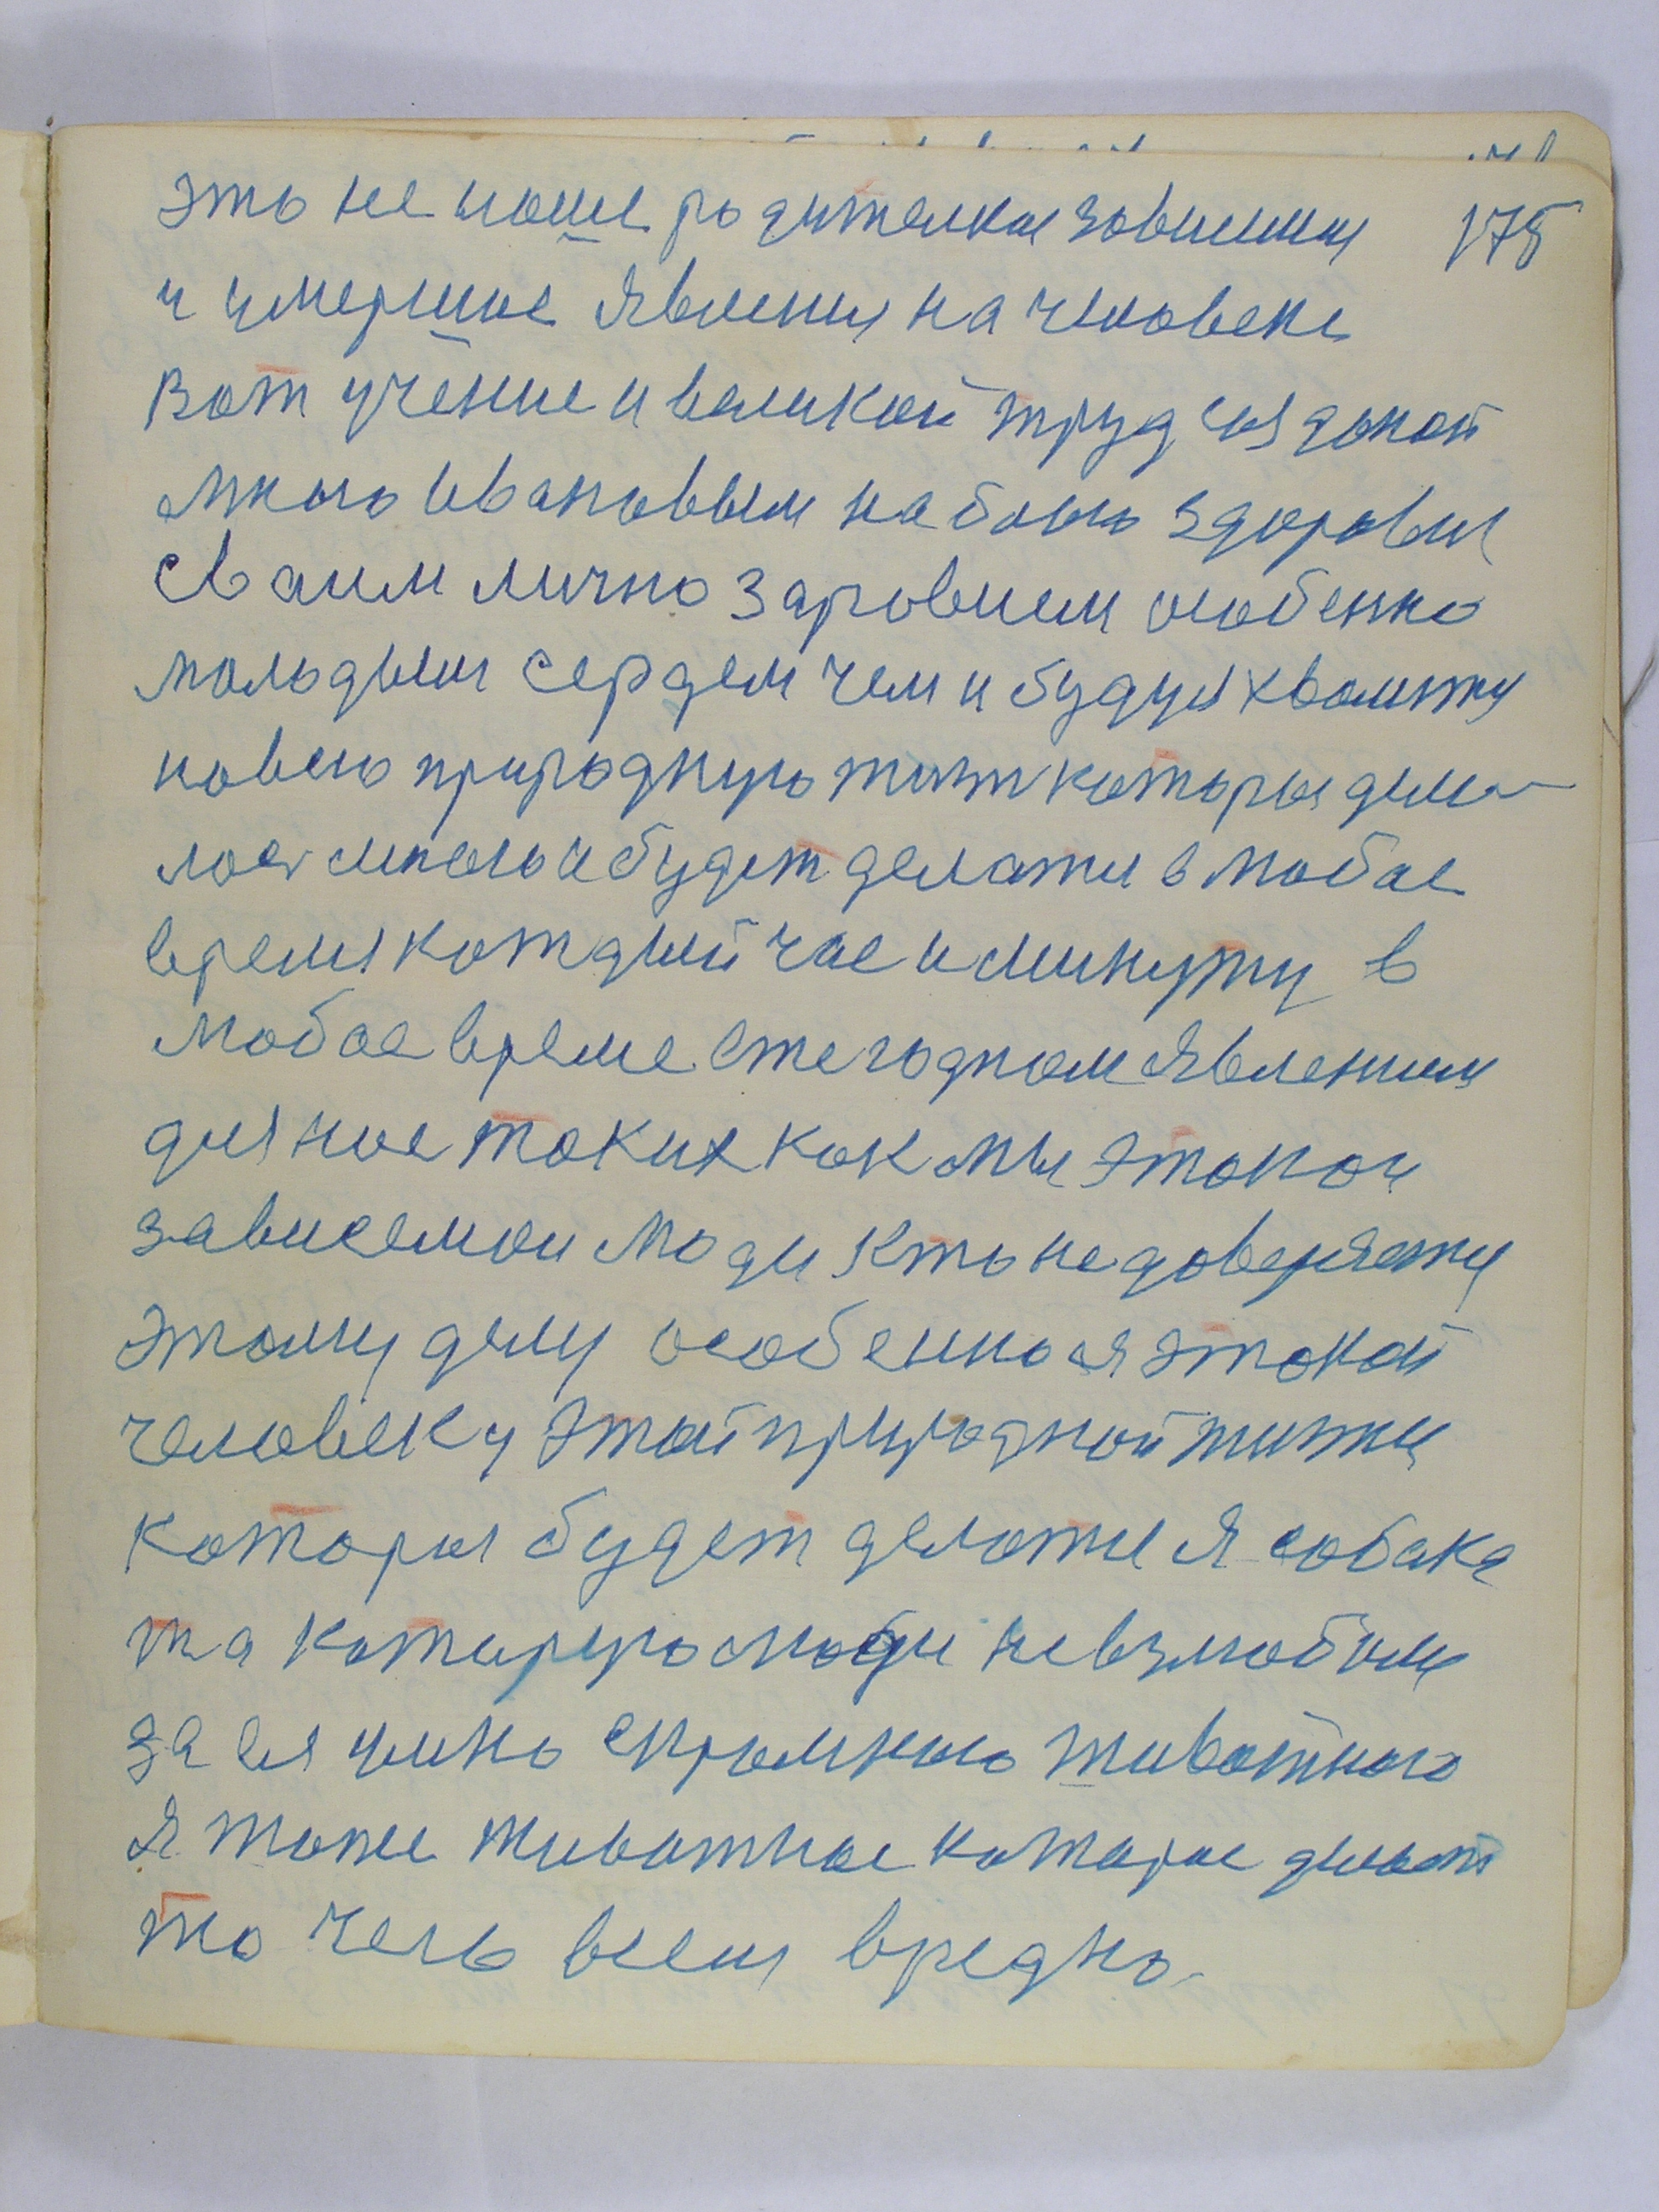 175
это не наше родителкае зависиния
и умершие явления на человеке
Вот учение и великой труд создоной
мною Ивановым на бозю здоровия
Сваим лично здровием особенно
малодым сердем чем и будуя хвалити
новаю природную тизн каторыя дела-
лося мною и будет делати в любае
время котдый час и минуту в
любае време стегодном явлением
для нас таких как мы этокои
зависемои люди кто не доверяети
этому делу особенно я этокой
человек у этой природной тизни
каторыя будет делати Я собака
та каторую люди невзлюбили
за ея умно скромною тиватною
Я тоже тиватное каторае делает
то чего всем вредно